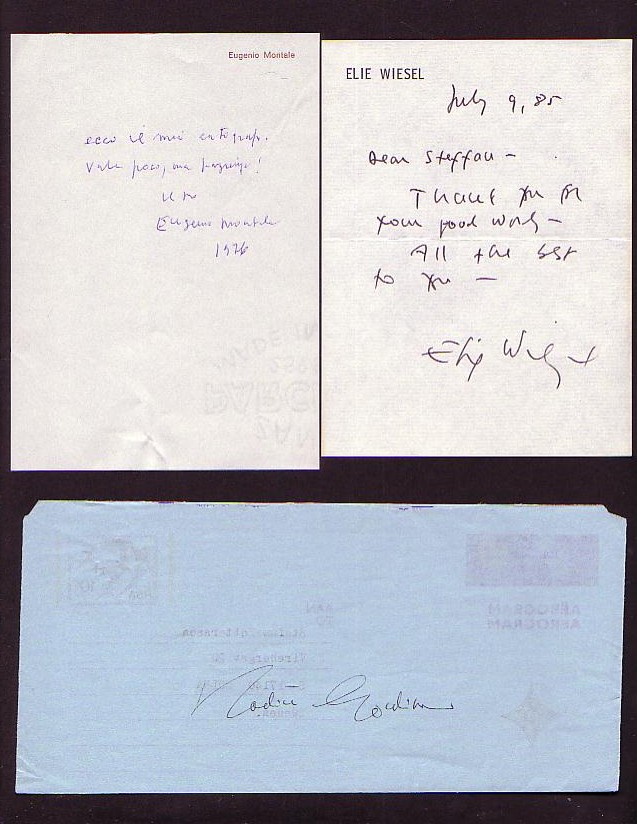 Eugenio Montale
ecco il mio autografo.
Vale poco, ma pazienza!
il tuo
Eugenio Montale
1976
ELIE WIESEL
July 9, 85
Dear Steffan —
Thank you for
your good words —
All the best
to you —
Elie Wiesel
MADE IN
AAN
TO
AEROGRAM
AEROGRAM
Nadine Gordimer